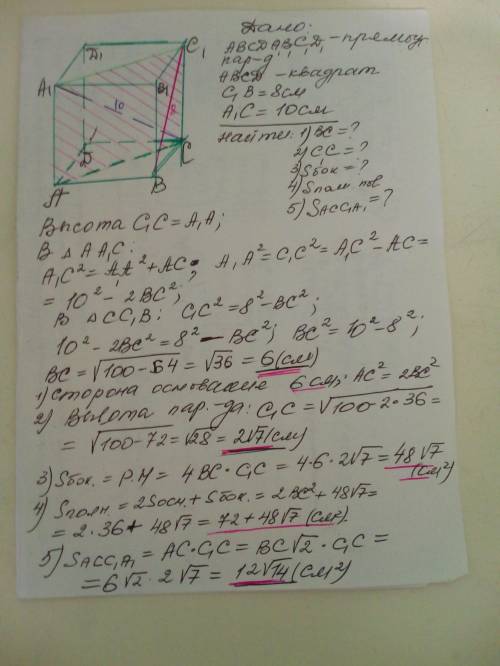 Дано:
ABCDA₁B₁C₁D₁ - прямоуг
пар-д
ABCD - квадрат
C₁B = 8см
A₁C = 10см
Найти: 1) BC = ?
2) CC₁ = ?
3) Sбок = ?
4) Sполн пов
5) SACC₁A₁ = ?
D₁
C₁
A₁
B₁
10
8
D
C
A
B
Высота C₁C = A₁A;
В △ AA₁C:
A₁C² = AA₁² + AC²; A₁A² = C₁C² = A₁C² - AC² =
= 10² - 2BC²;
В △ CC₁B: C₁C² = 8² - BC²;
10² - 2BC² = 8² - BC²; BC² = 10² - 8²;
BC = √100-64 = √36 = 6(см)
1) Сторона основание 6 см; AC² = 2BC²
2) Высота пар-да: C₁C = √100-2·36 =
= √100-72 = √28 = 2√7(см)
3) Sбок. = P·H = 4BC·C₁C = 4·6·2√7 = 48√7
(см²)
4) Sполн. = 2Sосн. + Sбок. = 2BC² + 48√7 =
= 2·36 + 48√7 = 72 + 48√7 (см²).
5) SACC₁A₁ = AC·C₁C = BC√2 · C₁C =
= 6√2 · 2√7 = 12√14 (см²)